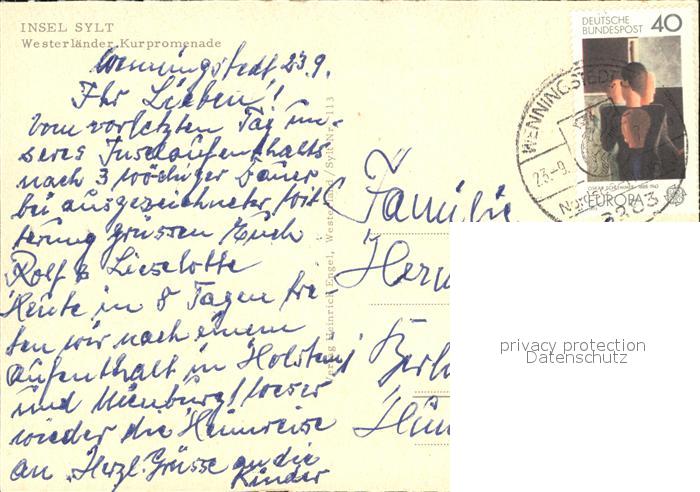 INSEL SYLT
Westerländer Kurpromenade
Wenningstedt 23.9.
Ihr Lieben!
Vom vorletzten Tag un-
seres Inselaufenthalts
nach 3 wöchiger Dauer
bei ausgezeichneter Wit-
terung grüssen Euch
Rolf & Lieselotte
Heute in 8 Tagen tre-
ten wir nach einem
Aufenthalt in Holstein
und Nienburg/Weser
wieder die Heimreise
an. Herzl. Grüsse an die
Kinder
Verlag Heinrich Engel, Westerland/Sylt Nr. 113
DEUTSCHE
BUNDESPOST 40
OSKAR SCHLEMMER 1888-1943
EUROPA
WENNINGSTEDT
23.-9.
2283
Familie
privacy protection
Datenschutz